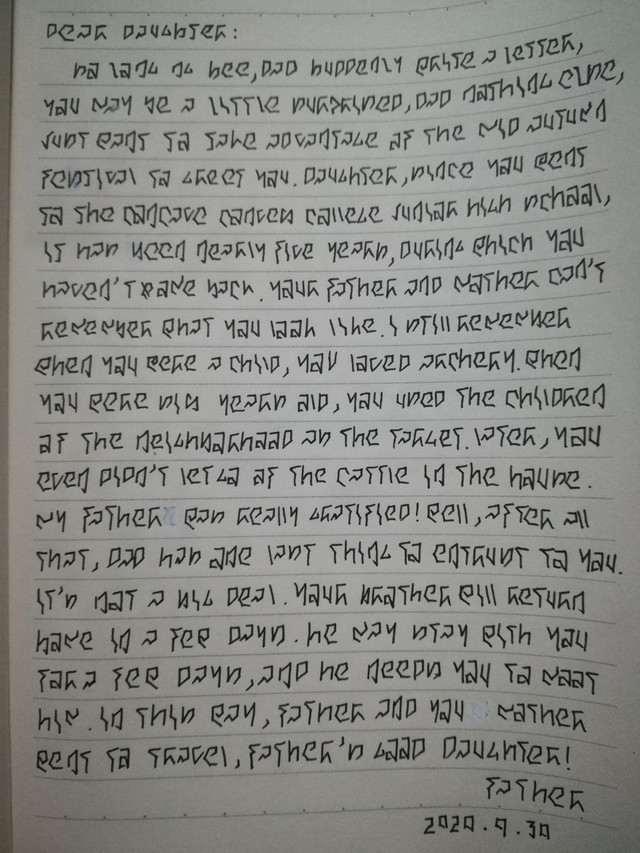 Dear Daughter:
So long no see, Dad suddenly write a letter,
you may be a little surprised, Dad nothing else,
just want to take advantage of the mid autumn
festival to greet you. Daughter, since you went
to the concave convex college junior high school,
it has been nearly five years, during which you
haven't come back. Your father and mother can't
remember what you look like. I still remember
when you were a child, you loved archery. When
you were six years old, you used the children
of the neighborhood as the target. Later, you
even didn't let go of the cattle in the house.
My father was really gratified! Well, after all
that, Dad has one last thing to entrust to you.
It's not a big deal. Your brother will return
home in a few days. He may stay with you
for a few days, and he needs you to meet
him. In this way, father and you mother
went to travel, father's good daughter!
Father
2020.9.30